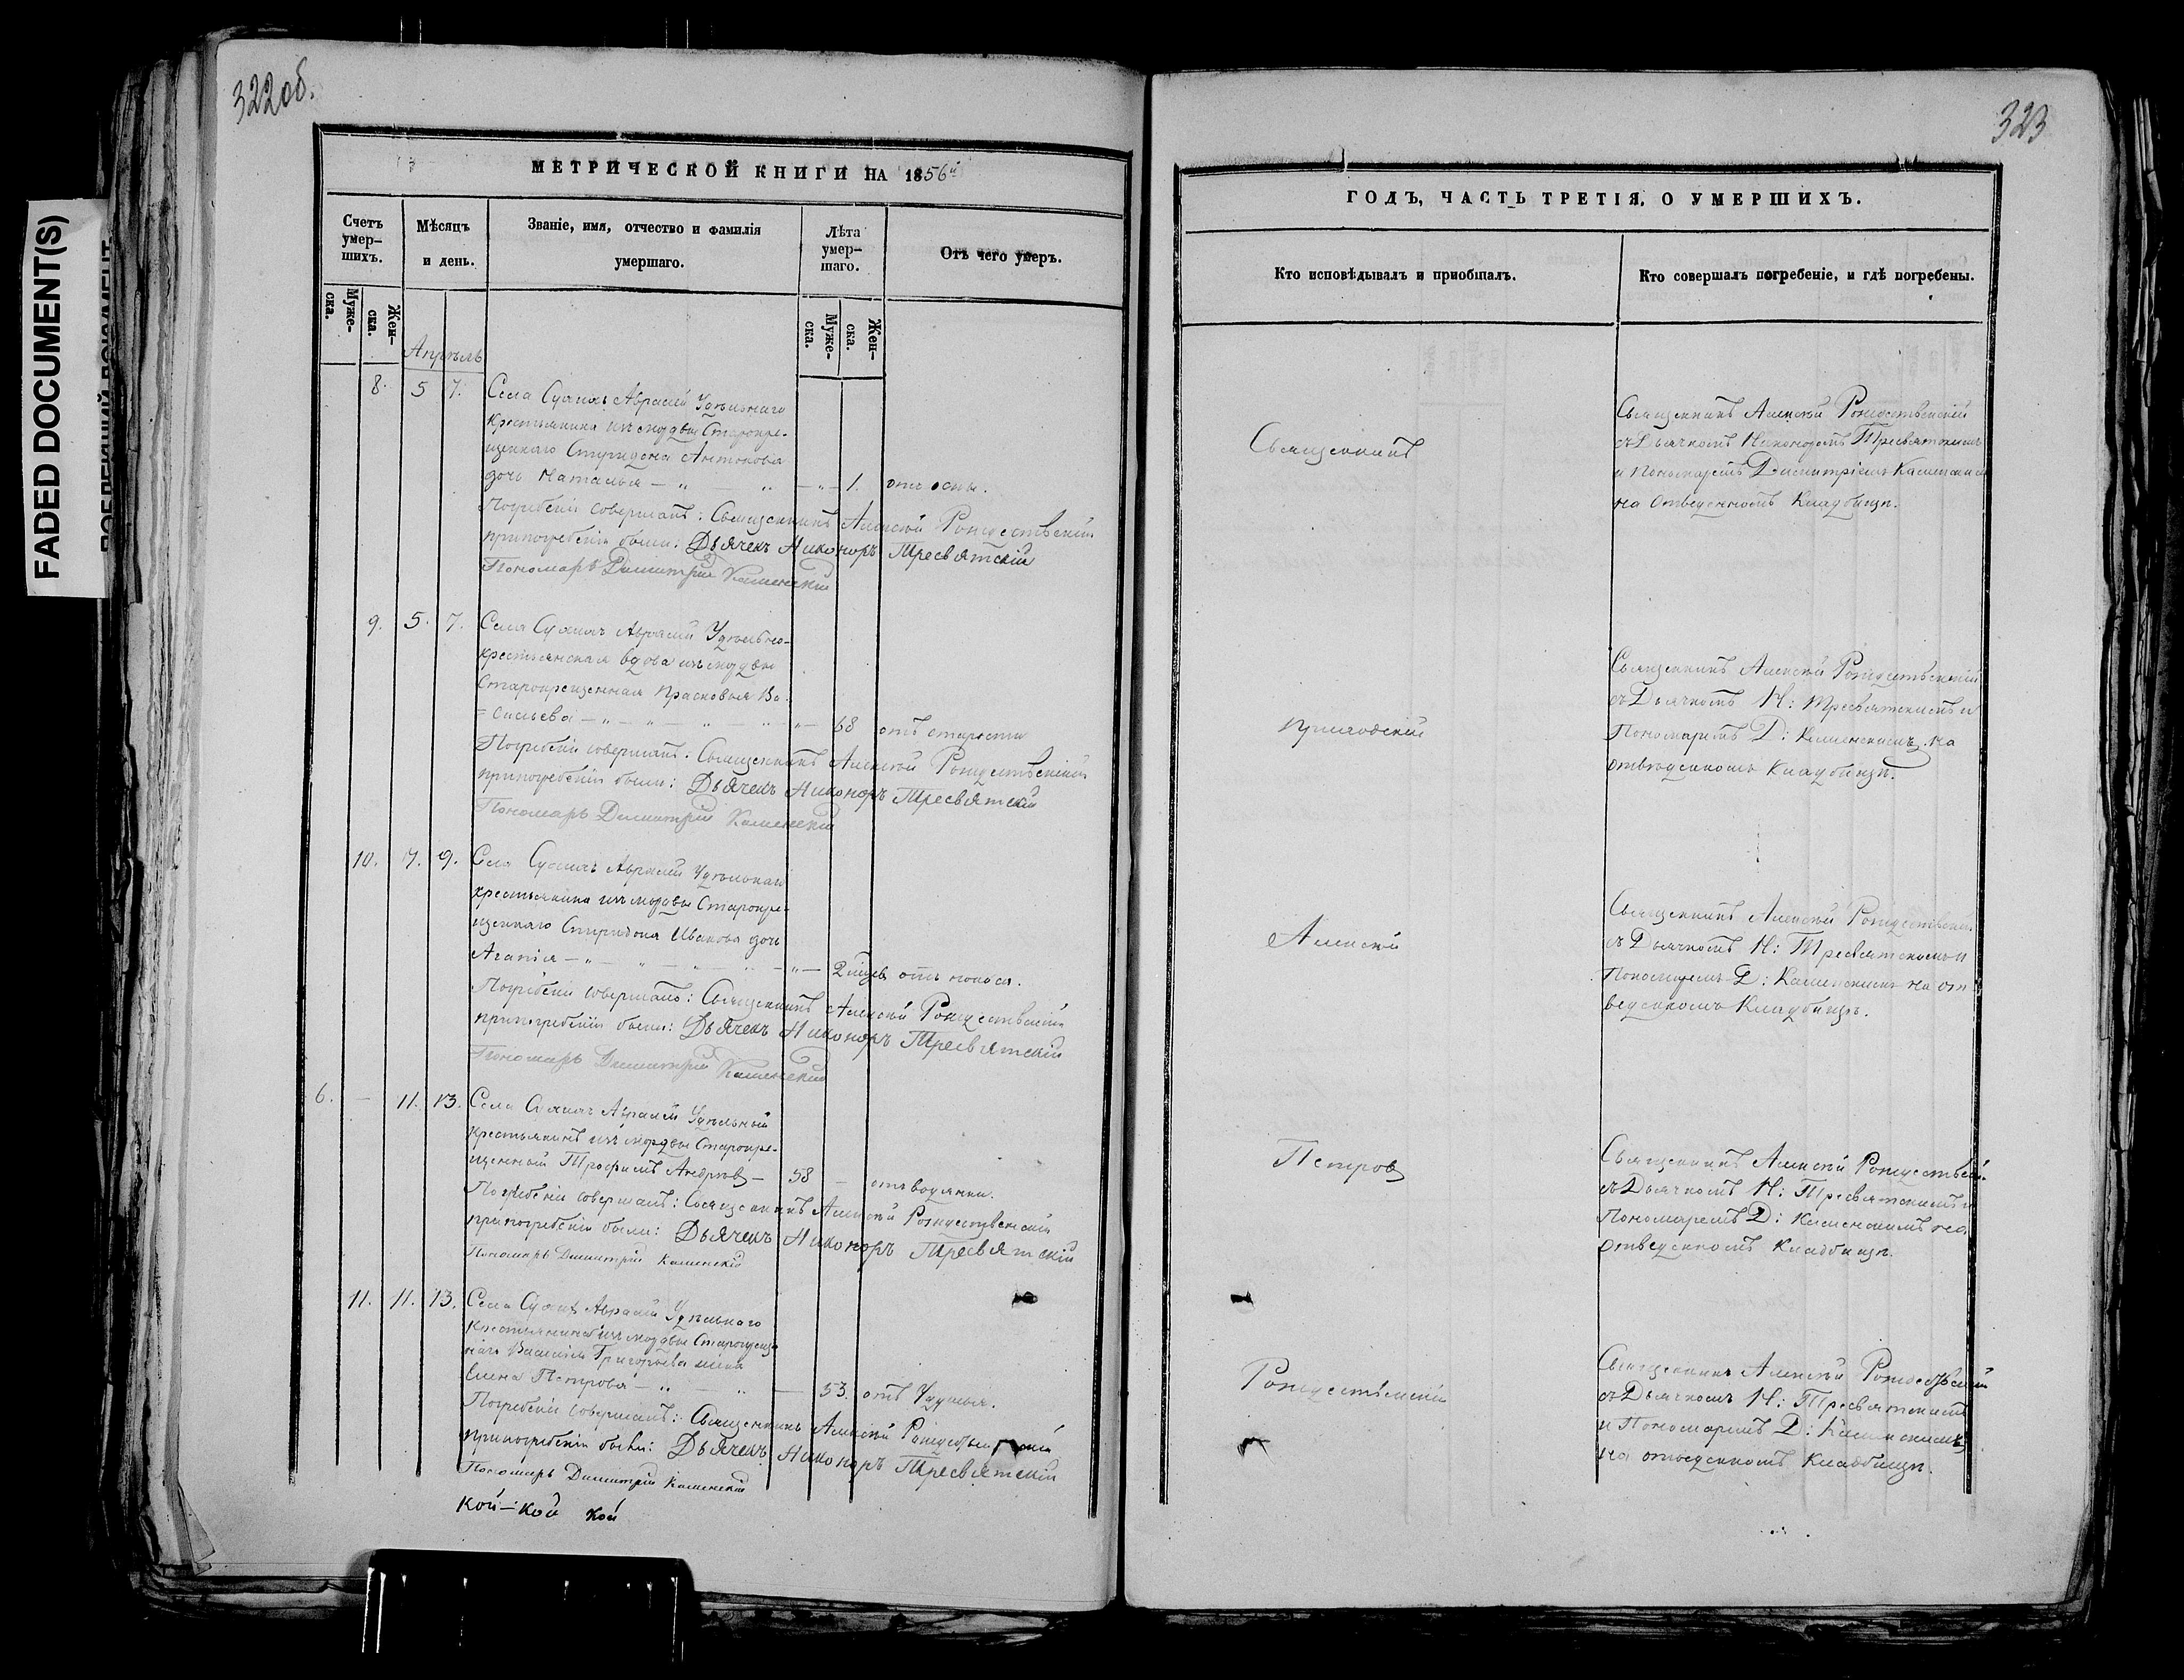 322об.
FADED DOCUMENT(S)
МЕТРИЧЕСКОЙ КНИГИ НА 1856й
Счетъ умер-
шихъ.
Мѣсяцъ
и день.
Званіе, имя, отчество и фамилія
умершаго.
Лѣта
умер-
шаго.
Отъ чего умеръ.
Муже-
ска.
Жен-
ска.
Муже-
ска.
Жен-
ска.
Апрѣль
8. 5 7. Села Авралей Удѣльнаго
крестьянина изъ мордвы Старокре-
щеннаго Спиридона Антонова
дочь Наталья — „ — „ — „ — 1. отъ оспы.
Погребеніе совершалъ: Священникъ Алексѣй Рождественскій
при погребеніи были: Дьячекъ Никоноръ Тресвятскій
Пономарь Димитрій Каменскій
9. 5. 7. Села Авралей Удѣльно-
крестьянская вдова изъ мордвы
Старокрещенная Прасковья Ва-
=сильева — „ — „ — „ — „ — 68 отъ старости
Погребеніе совершалъ: Священникъ Алексѣй Рождественскій
при погребеніи были: Дьячекъ Никоноръ Тресвятскій
Пономарь Димитрій Каменскій
10. 7. 9. Села Авралей Удѣльнаго
крестьянина изъ мордвы Старокре-
щеннаго Спиридона Иванова дочь
Агапія — „ — „ — „ — „ — 2 отъ поноса.
Погребеніе совершалъ: Священникъ Алексѣй Рождественскій
при погребеніи были: Дьячекъ Никоноръ Тресвятскій
Пономарь Димитрій Каменскій
6. — 11. 13. Села Авралей Удѣльный
крестьянинъ изъ мордвы Старокре-
щенный Трофимъ Андреев — 58 — отъ водянки.
Погребеніе совершалъ: Священникъ Алексѣй Рождественскій
при погребеніи были: Дьячекъ Никоноръ Тресвятскій
Пономарь Димитрій Каменскій
11. 11. 13. Села Авралей Удѣльнаго
крестьянина изъ мордвы Старокрещен-
наго Василія Григорьева жена
Елена Петрова — „ — „ — 53. отъ Удушья.
Погребеніе совершалъ: Священникъ Алексѣй
при погребеніи были: Дьячекъ Никоноръ Тресвятскій
Пономарь Димитрій Каменскій
кой — кой кой
323
ГОДЪ, ЧАСТЬ ТРЕТІЯ, О УМЕРШИХЪ.
Кто исповѣдывалъ и приобщалъ.
Кто совершалъ погребеніе, и гдѣ погребены.
Священникъ
приходскій
Алексѣй
Петров
Рождественскій
Священникъ Алексѣй Рождественскій
съ Дьячкомъ Никоноромъ Тресвятскимъ
и Пономаремъ Димитріемъ Каменскимъ
на отведенномъ Кладбищѣ.
Священникъ Алексѣй Рождественскій
съ Дьячкомъ Н: Тресвятскимъ и
Пономаремъ Д: Каменскимъ на
отведенномъ Кладбищѣ.
Священникъ Алексѣй Рождественскій
съ Дьячкомъ Н: Тресвятскимъ и
Пономаремъ Д: Каменскимъ на от-
веденномъ Кладбищѣ.
Священникъ Алексѣй Рождественскій
съ Дьячкомъ Н: Тресвятскимъ и
Пономаремъ Д: Каменскимъ на
отведенномъ Кладбищѣ.
Священникъ Алексѣй Рождественскій
съ Дьячкомъ Н: Тресвятскимъ
и Пономаремъ Д: Каменскимъ
на отведенномъ Кладбищѣ.